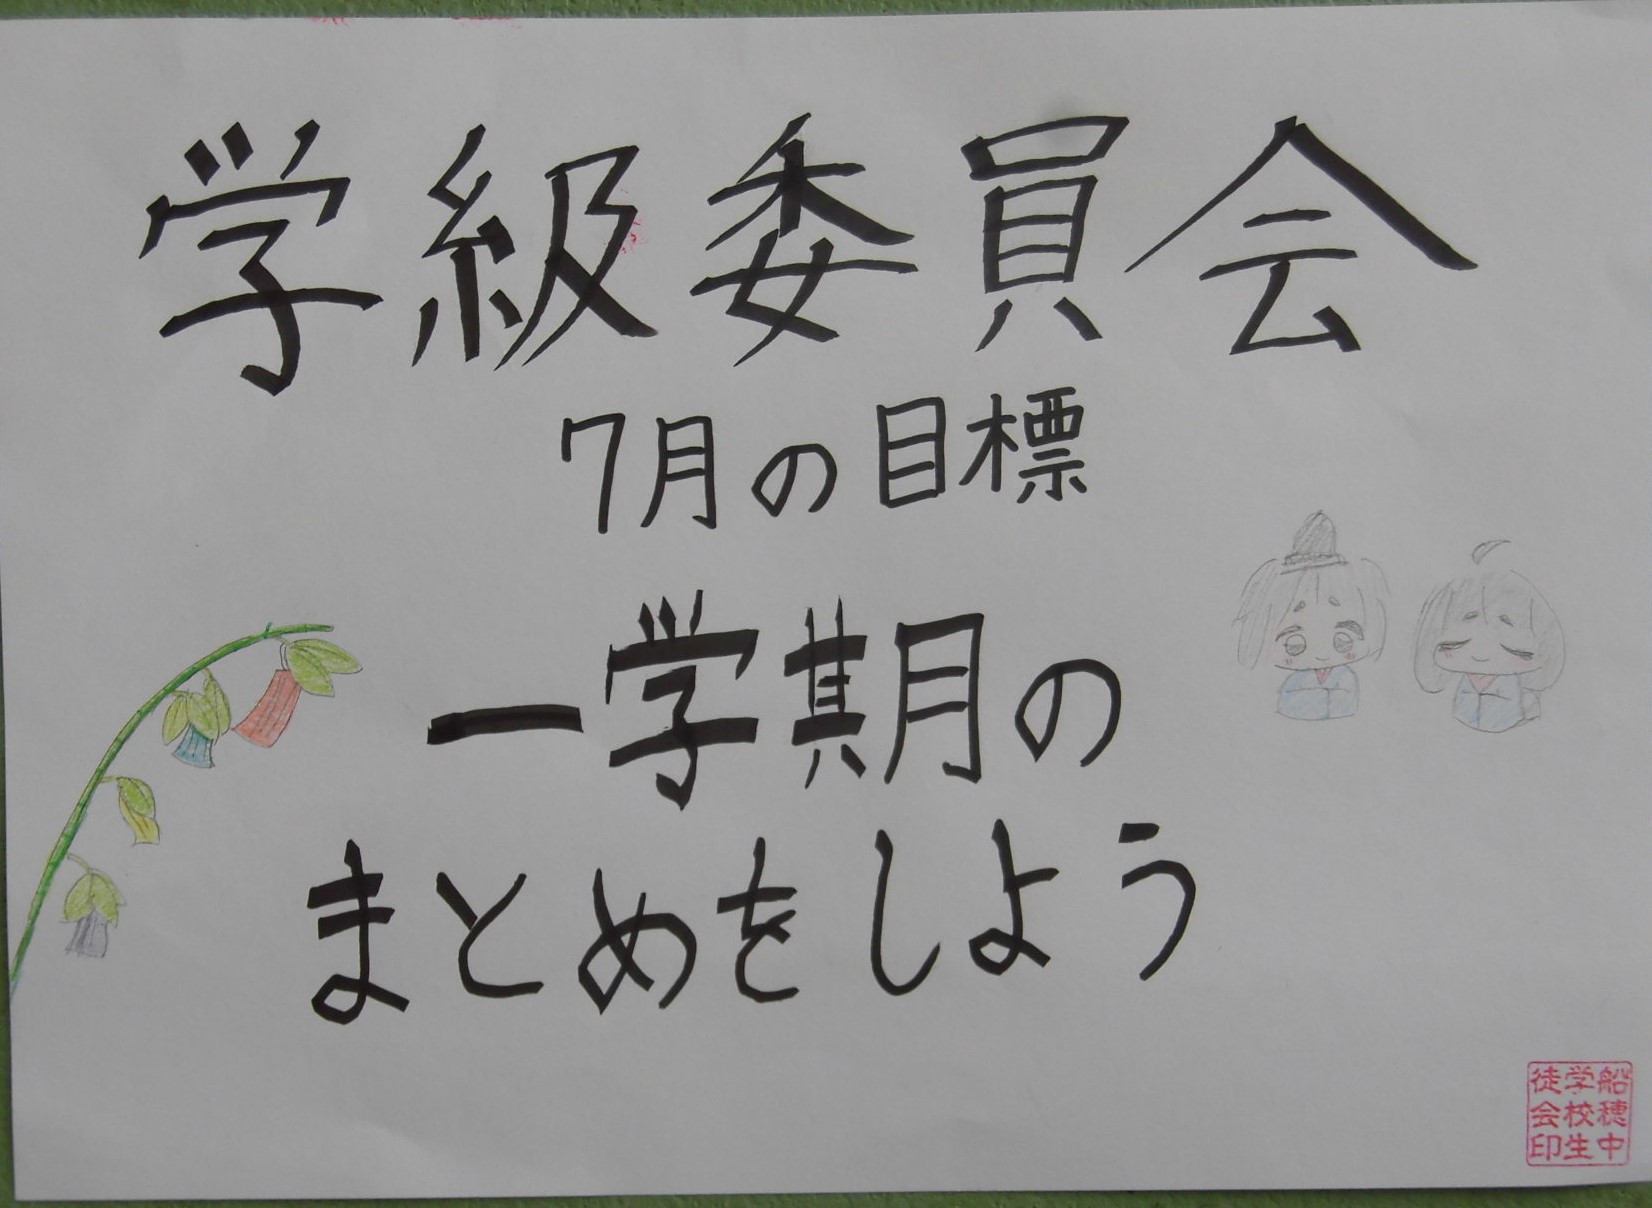 学級委員会
7月の目標
一学期の
まとめをしよう
船穂中
学校生
徒会印